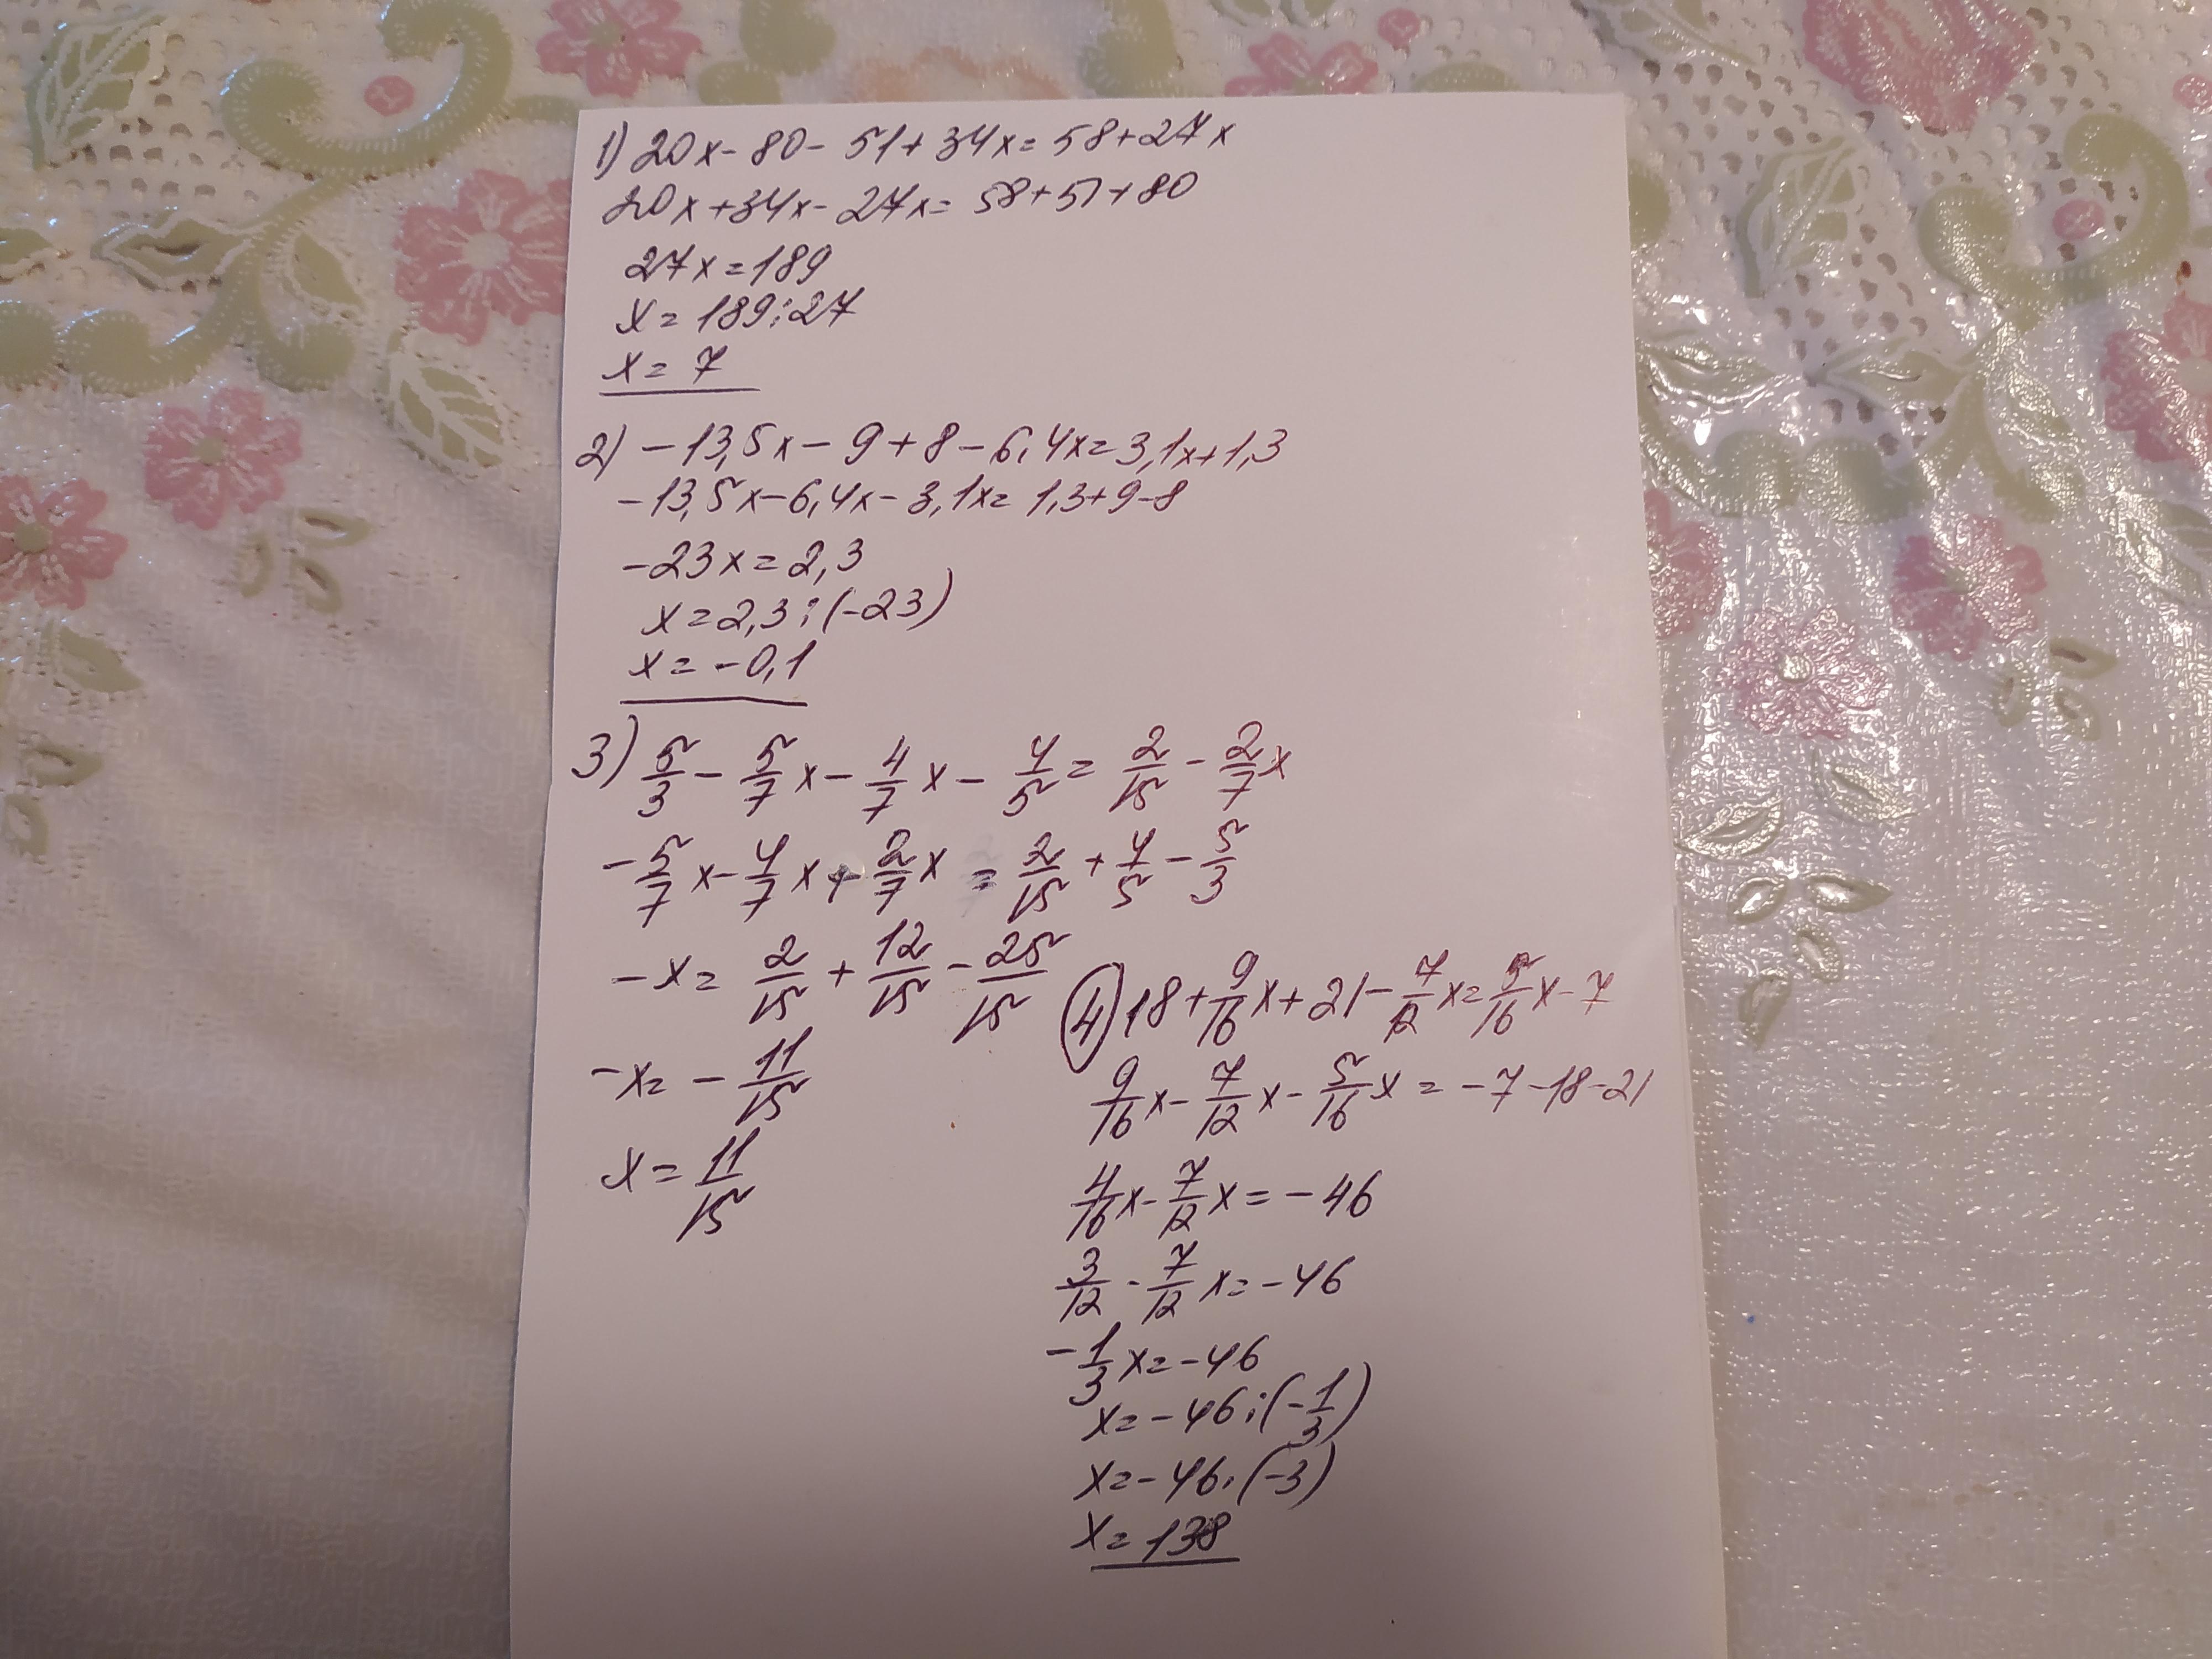 1) 20x - 80 - 51 + 34x = 58 + 27x
20x + 34x - 27x = 58 + 51 + 80
27x = 189
x = 189 : 27
x = 7
2) - 13,5x - 9 + 8 - 6,4x = 3,1x + 1,3
- 13,5x - 6,4x - 3,1x = 1,3 + 9 - 8
- 23x = 2,3
x = 2,3 : (-23)
x = - 0,1
3) 5/3 - 5/7 x - 4/7 x - 4/5 = 2/15 - 2/7 x
- 5/7 x - 4/7 x + 2/7 x = 2/15 + 4/5 - 5/3
- x = 2/15 + 12/15 - 25/15
- x = - 11/15
x = 11/15
4) 18 + 9/16 x + 21 - 7/12 x = 5/16 x - 7
9/16 x - 7/12 x - 5/16 x = - 7 - 18 - 21
4/16 x - 7/12 x = - 46
3/12 - 7/12 x = - 46
- 1/3 x = - 46
x = - 46 : (- 1/3)
x = - 46 · (-3)
x = 138